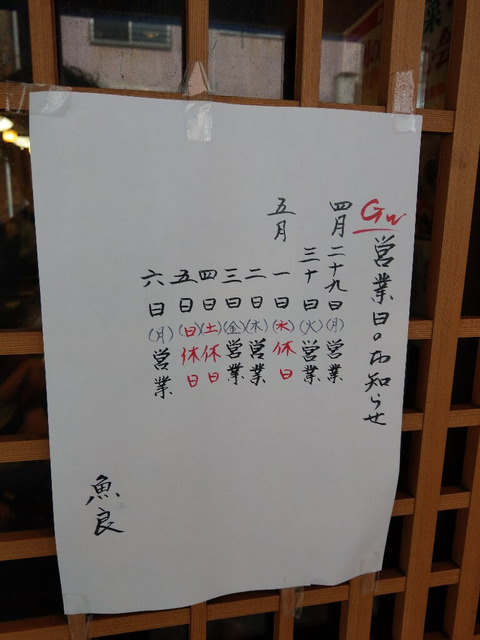 GW営業日のお知らせ
四月二十九日(月)営業
三十日(火)営業
五月一日(水)休日
二日(木)営業
三日(金)営業
四日(土)休日
五日(日)休日
六日(月)営業
魚良